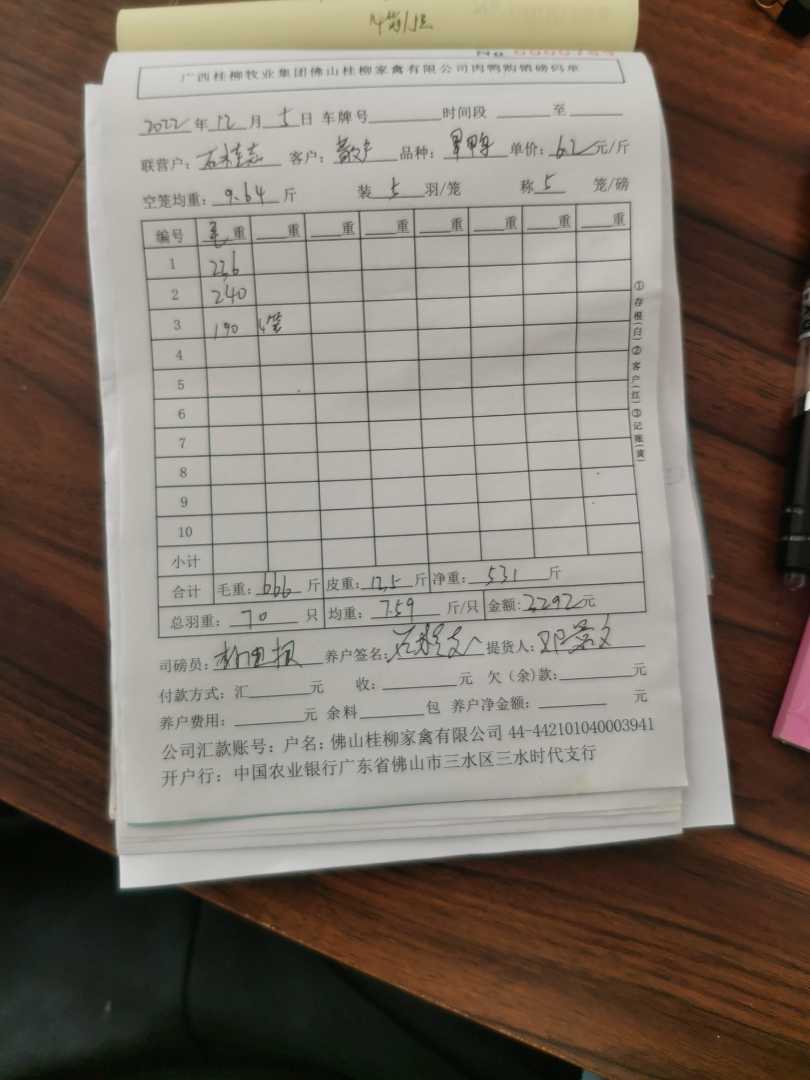 4笼1层
No
广西桂柳牧业集团佛山桂柳家禽有限公司肉鸭购销磅码单
2022年12月5日 车牌号 时间段 至
联营户: 客户: 散户 品种: 单价: 6.2元/斤
空笼均重: 9.64斤 装5羽/笼 称5笼/磅
编号 毛重 重 重 重 重 重 重 重
1 236
2 240
3 190 4笼
4
5
6
7
8
9
10
小计
合计 毛重: 666斤 皮重: 135斤 净重: 531斤
总羽重: 70只 均重: 7.59斤/只 金额: 3292元
司磅员: 养户签名: 提货人:
付款方式: 汇 元 收: 元 欠(余)款: 元
养户费用: 元 余料 包 养户净金额: 元
公司汇款账号: 户名: 佛山桂柳家禽有限公司 44-442101040003941
开户行: 中国农业银行广东省佛山市三水区三水时代支行
①存根(白)②客户(红)③记账(黄)